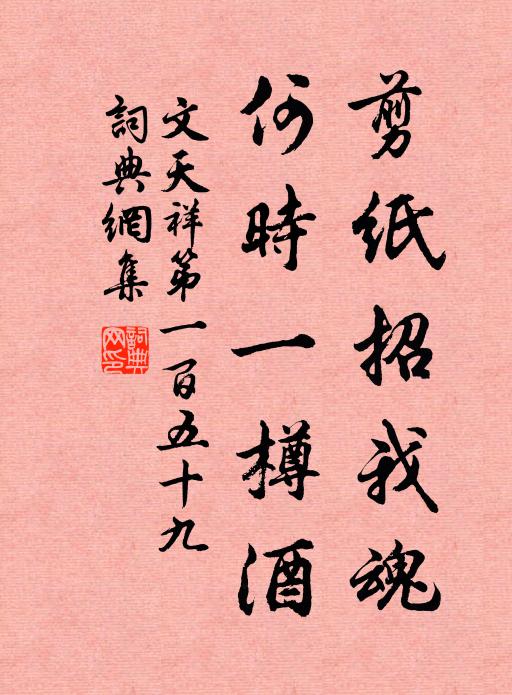 剪紙招我魂
何時一樽酒
文天祥第一百五十九
詞典網集
詞典网印